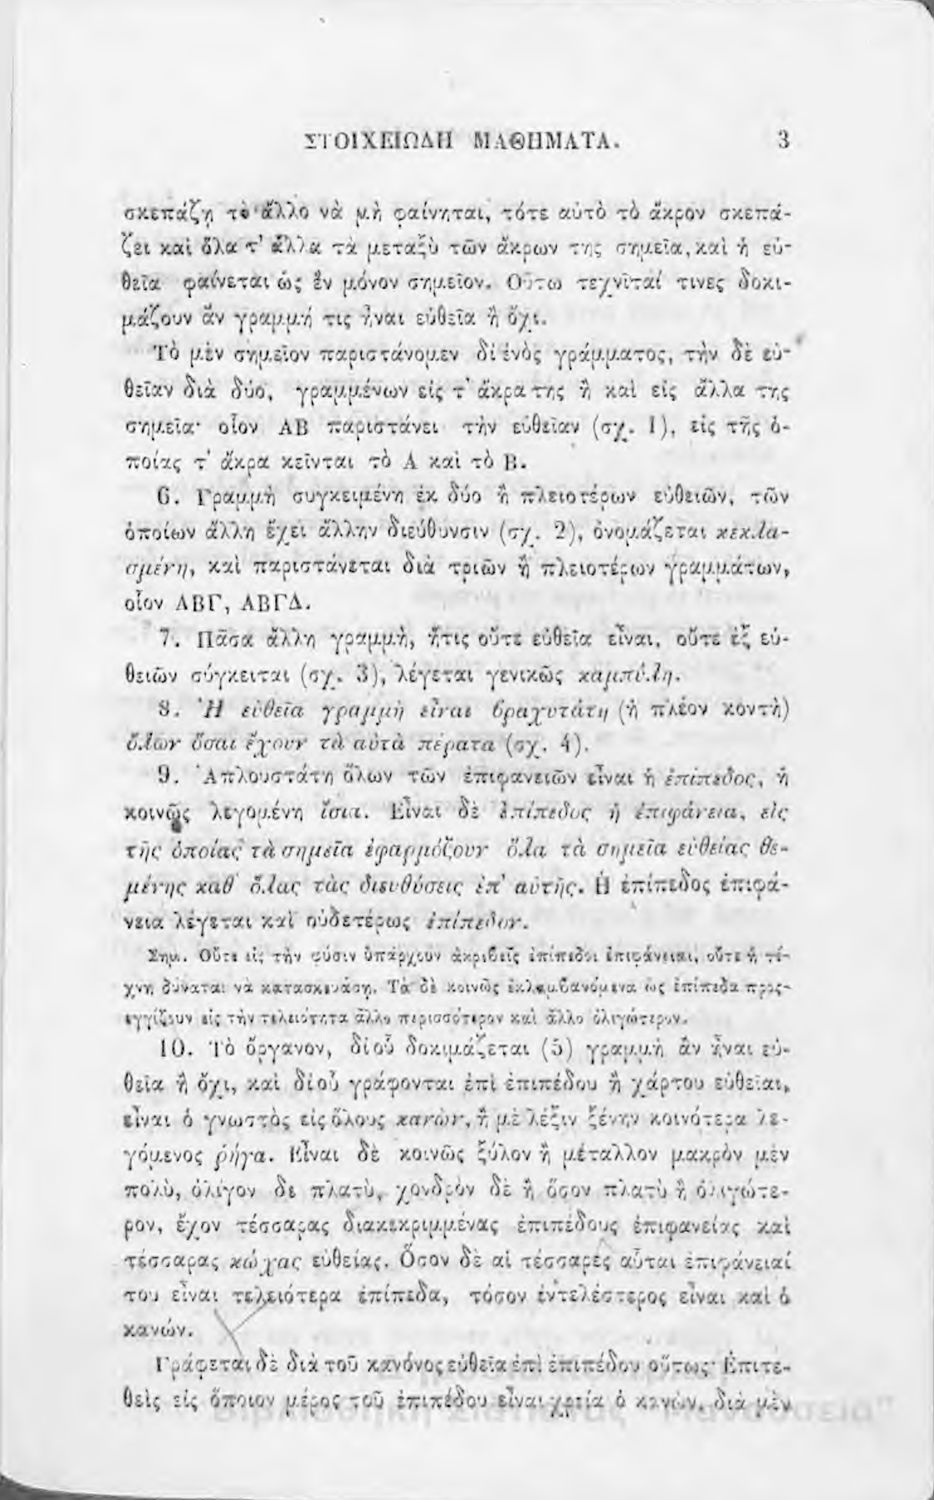 ΣΤΟΙΧΕΙΩΔΗ ΜΑΘΗΜΑΤΑ. 3
σκεπάζῃ τὸ ἄλλο νὰ μὴ φαίνηται, τότε αὐτὸ τὸ ἄκρον σκεπά-
ζει καὶ ὅλα τ' ἄλλα τὰ μεταξὺ τῶν ἄκρων της σημεῖα, καὶ ἡ εὐ-
θεῖα φαίνεται ὡς ἓν μόνον σημεῖον. Οὕτω τεχνῖταί τινες δοκι-
μάζουν ἂν γραμμή τις ᾖναι εὐθεῖα ἢ ὄχι.
Τὸ μὲν σημεῖον παριστάνομεν δί ἑνὸς γράμματος, τὴν δὲ εὐ-
θεῖαν διὰ δύο, γραμμένων εἰς τ' ἄκρα της ἢ καὶ εἰς ἄλλα της
σημεῖα· οἷον ΑΒ παριστάνει τὴν εὐθεῖαν (σχ. 1), εἰς τῆς ὁ-
ποίας τ' ἄκρα κεῖνται τὸ Α καὶ τὸ Β.
6. Γραμμὴ συγκειμένη ἐκ δύο ἢ πλειοτέρων εὐθειῶν, τῶν
ὁποίων ἄλλη ἔχει ἄλλην διεύθυνσιν (σχ. 2), ὀνομάζεται κεκλα-
σμένη, καὶ παριστάνεται διὰ τριῶν ἢ πλειοτέρων γραμμάτων,
οἷον ΑΒΓ, ΑΒΓΔ.
7. Πᾶσα ἄλλη γραμμὴ, ἥτις οὔτε εὐθεῖα εἶναι, οὔτε ἐξ εὐ-
θειῶν σύγκειται (σχ. 3), λέγεται γενικῶς καμπύλη.
8. Ἡ εὐθεῖα γραμμὴ εἶναι βραχυτάτη (ἡ πλέον κοντὴ)
ὅλων ὅσαι ἔχουν τὰ αὐτὰ πέρατα (σχ. 4).
9. Ἁπλουστάτη ὅλων τῶν ἐπιφανειῶν εἶναι ἡ ἐπίπεδος, ἡ
κοινῶς λεγομένη ἴσια. Εἶναι δὲ ἐπίπεδος ἡ ἐπιφάνεια, εἰς
τῆς ὁποίας τὰ σημεῖα ἐφαρμόζουν ὅλα τὰ σημεῖα εὐθείας θε-
μένης καθ' ὅλας τὰς διευθύσεις ἐπ' αὐτῆς. Ἡ ἐπίπεδος ἐπιφά-
νεια λέγεται καὶ οὐδετέρως ἐπίπεδον.
Σημ. Οὔτε εἰς τὴν φύσιν ὑπάρχουν ἀκριβεῖς ἐπίπεδοι ἐπιφάνειαι, οὔτε ἡ τέ-
χνη δύναται νὰ κατασκευάσῃ. Τὰ δὲ κοινῶς ἐκλαμβανόμενα ὡς ἐπίπεδα προς-
εγγίζουν εἰς τὴν τελειότητα ἄλλο περισσότερον καὶ ἄλλο ὀλιγώτερον.
10. Τὸ ὄργανον, δί οὗ δοκιμάζεται (5) γραμμὴ ἂν ᾖναι εὐ-
θεῖα ἢ ὄχι, καὶ δί οὗ γράφονται ἐπὶ ἐπιπέδου ἢ χάρτου εὐθεῖαι,
εἶναι ὁ γνωστὸς εἰς ὅλους κανὼν, ἢ μὲ λέξιν ξένην κοινότερα λε-
γόμενος ῥήγα. Εἶναι δὲ κοινῶς ξύλον ἢ μέταλλον μακρὸν μὲν
πολὺ, ὀλίγον δὲ πλατὺ, χονδρὸν δὲ ἢ ὅσον πλατὺ ἢ ὀλιγώτε-
ρον, ἔχον τέσσαρας διακεκριμμένας ἐπιπέδους ἐπιφανείας καὶ
τέσσαρας κώχας εὐθείας. Ὅσον δὲ αἱ τέσσαρες αὗται ἐπιφάνειαί
του εἶναι τελειότερα ἐπίπεδα, τόσον ἐντελέστερος εἶναι καὶ ὁ
κανών.
Γράφεται δὲ διὰ τοῦ κανόνος εὐθεῖα ἐπὶ ἐπιπέδου οὕτως· Ἐπιτε-
θεὶς εἰς ὅποιον μέρος τοῦ ἐπιπέδου εἶναι χρεία ὁ κανών, διὰ μὲν